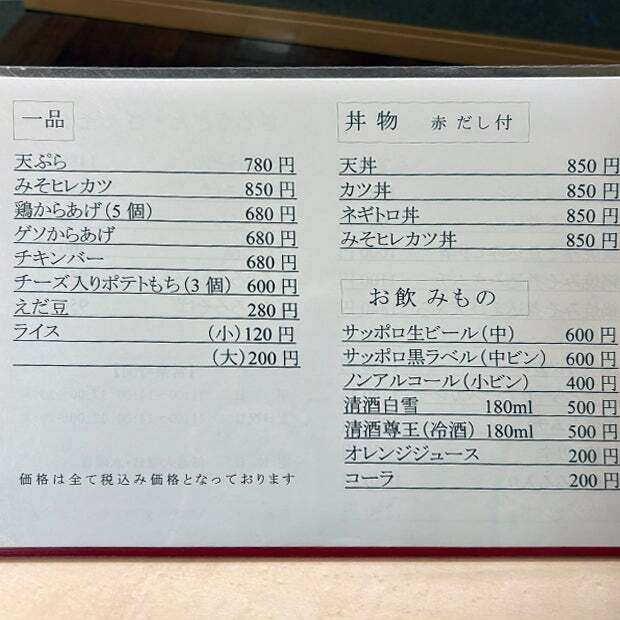 一品
天ぷら 780円
みそヒレカツ 850円
鶏からあげ(5個) 680円
ゲソからあげ 680円
チキンバー 680円
チーズ入りポテトもち(3個) 600円
えだ豆 280円
ライス (小)120円
(大)200円
価格は全て税込み価格となっております
丼物 赤だし付
天丼 850円
カツ丼 850円
ネギトロ丼 850円
みそヒレカツ丼 850円
お飲みもの
サッポロ生ビール(中) 600円
サッポロ黒ラベル(中ビン) 600円
ノンアルコール(小ビン) 400円
清酒白雪 180ml 500円
清酒尊王(冷酒) 180ml 500円
オレンジジュース 200円
コーラ 200円